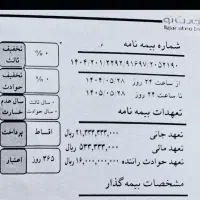 شماره بیمه نامه
۱۴۰۴/۲۰۱/۲۲۹۲/۹۱۶۹۷/۲۰۵۲۱۹۰
از ساعت ۲۴ روز ۱۴۰۴/۰۵/۲۸
تا ساعت ۲۴ روز ۱۴۰۵/۰۵/۲۸
تعهدات بیمه نامه
تعهد جانی ۲۱,۳۳۳,۳۳۳,۰۰۰ ریال
تعهد مالی ۵۳۳,۳۳۳,۰۰۰ ریال
تعهد حوادث راننده ۱۶,۰۰۰,۰۰۰,۰۰۰ ریال
مشخصات بیمه گذار
تخفیف ثالث
۰ %
تخفیف حوادث
۰ %
سال عدم خسارت
۰ سال ثالث
۰ سال حوادث
پرداخت
اقساط
اعتبار
۳۶۵ روز